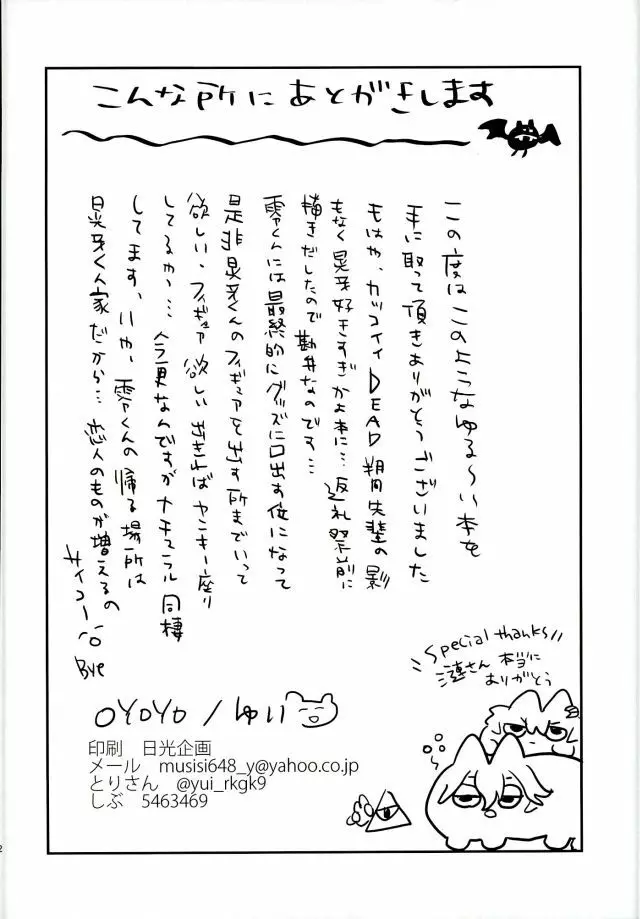 こんな所にあとがきします
この度はこのようなゆる〜い本を
手に取って頂きありがとうございました
もはや、カッコイイDEAD朔間先輩の影
もなく晃牙好きすぎかよ本に…返礼祭前に
描きだしたので勘弁なのです…
零くんには最終的にグッズに口出す位になって
是非晃牙くんのフィギュアを出す所までいって
欲しい、フィギュア欲しい出きればヤンキー座り
してるやつ…今更なんですがナチュラル同棲
してます、いや、零くんの帰る場所は
晃牙くん家だから…恋人のものが増えるの
サイコー
Bye
Special thanks!!
さん 本当に
ありがとう
OYOYO/ゆい
印刷 日光企画
メール musisi648_y@yahoo.co.jp
とりさん @yui_rkgk9
しぶ 5463469
2